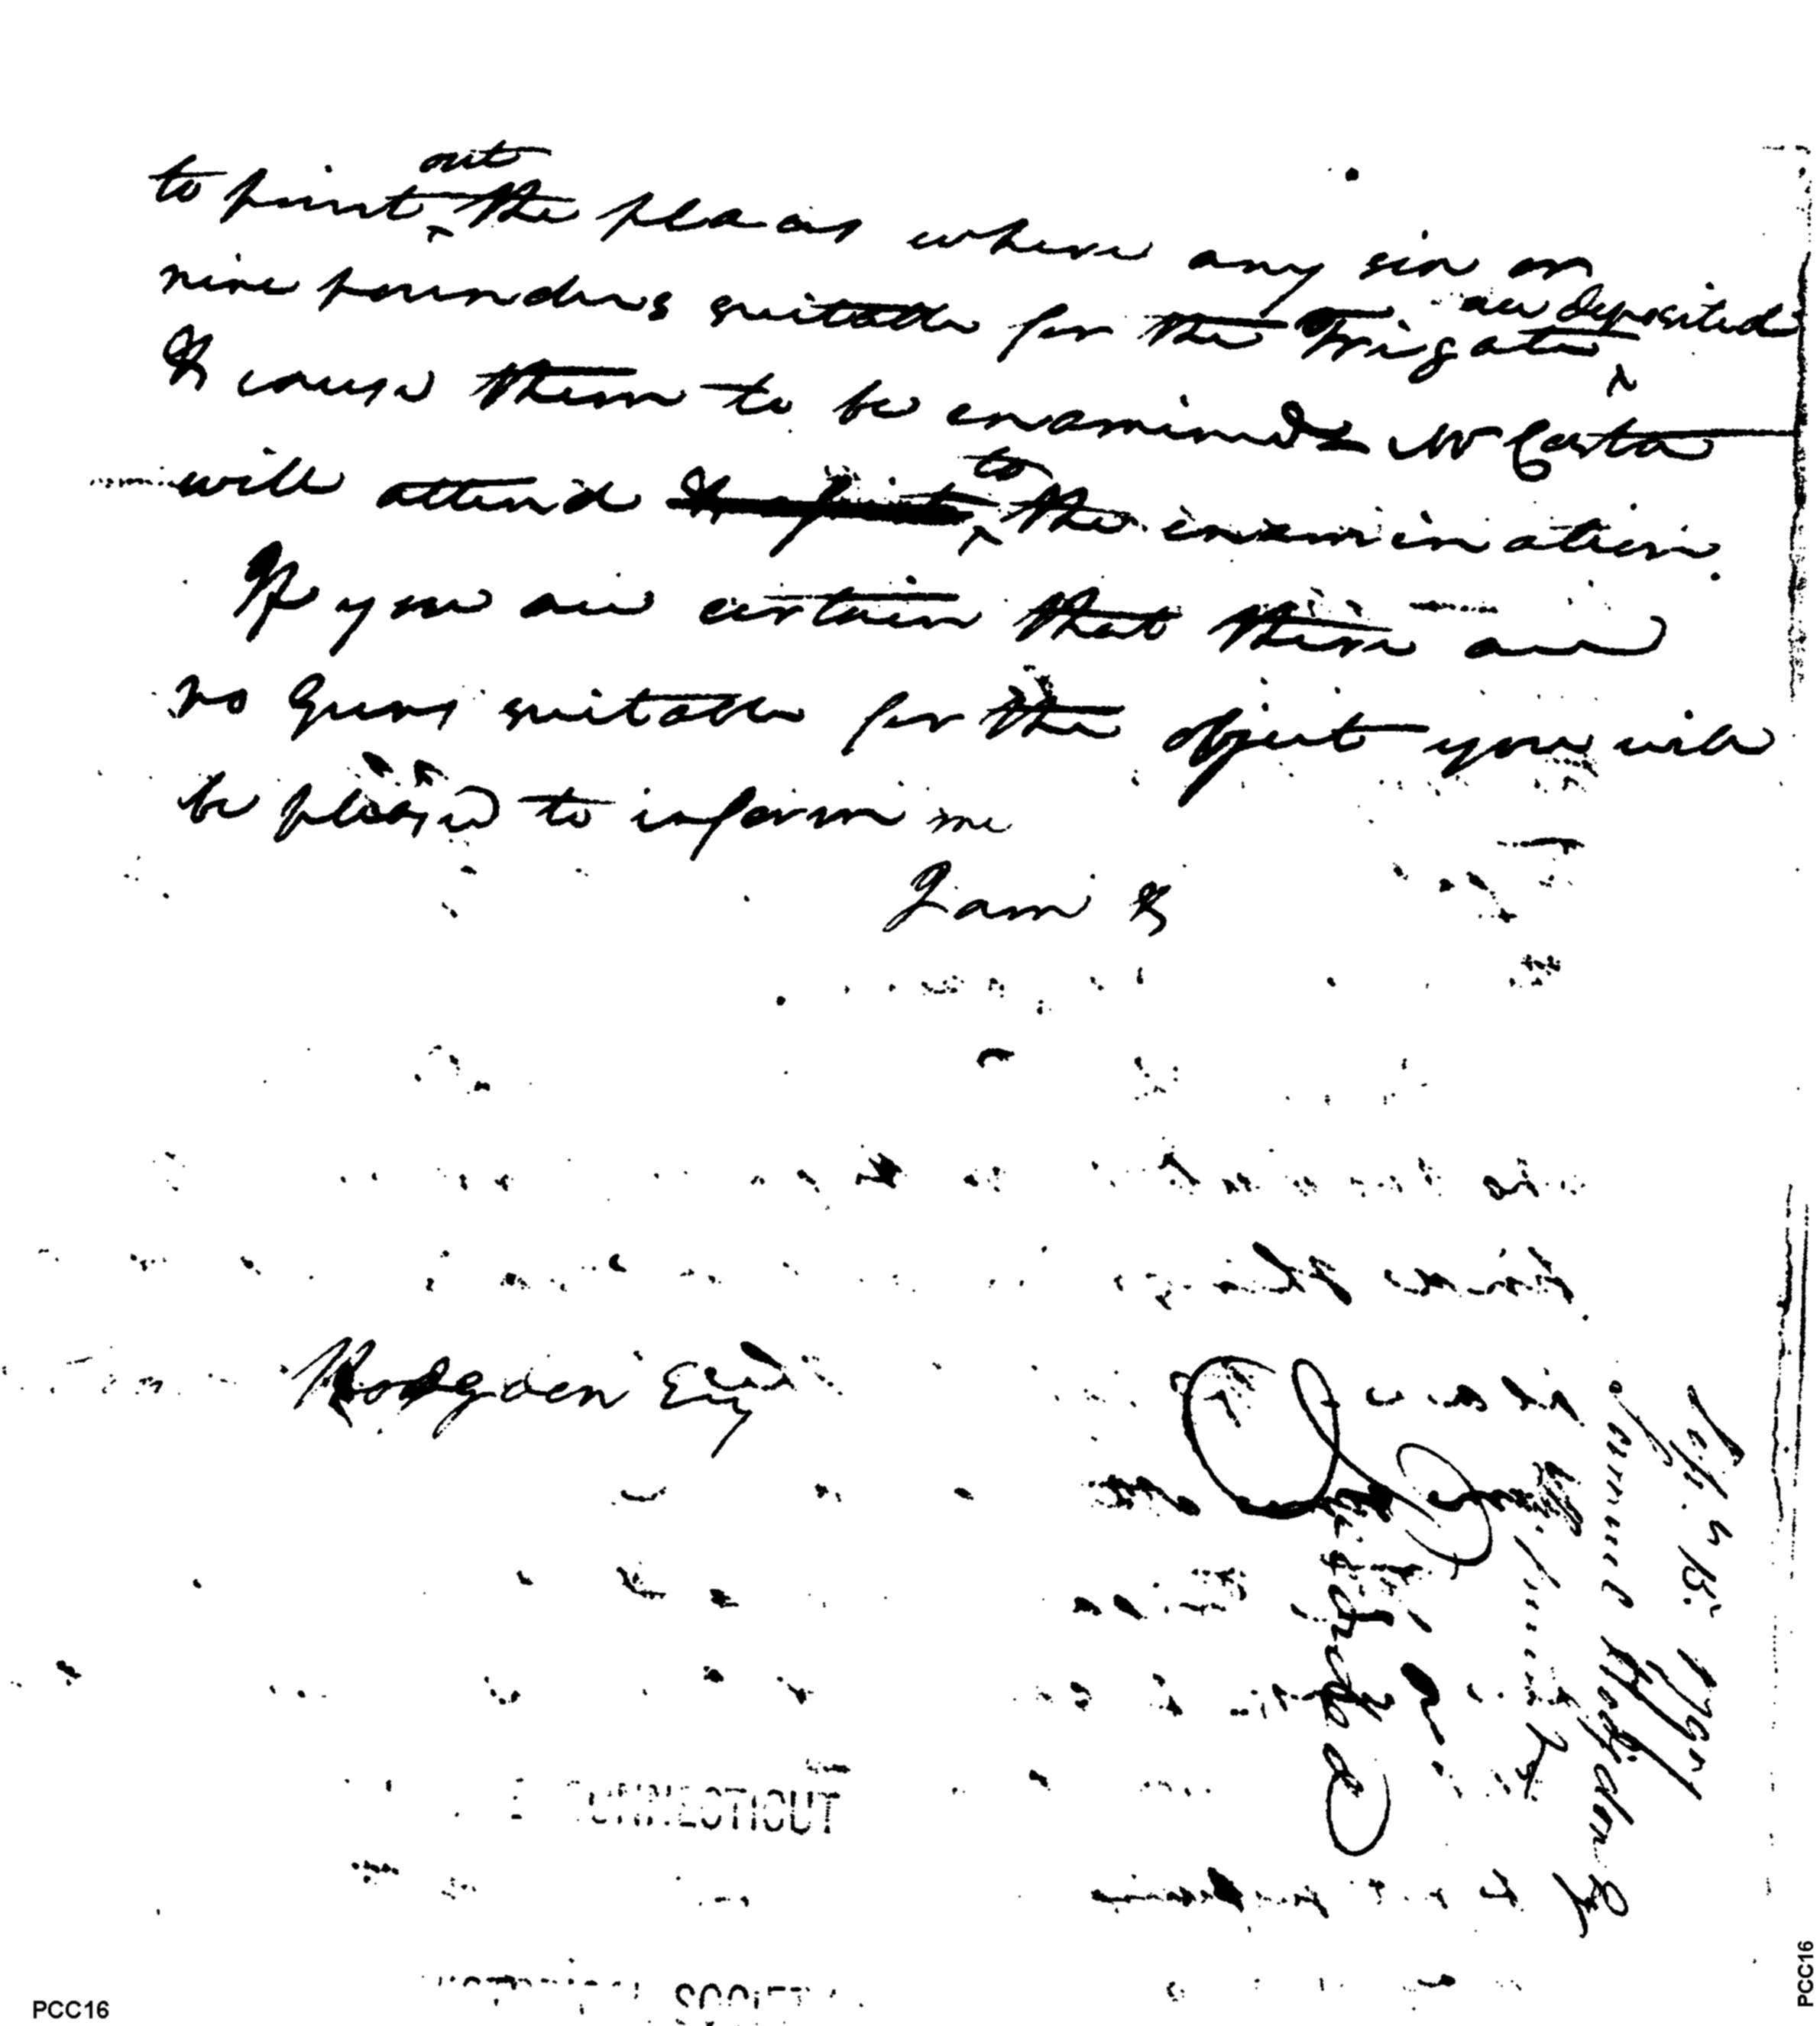 to point out the places where any six or
nine pounders suitable for the Frigates are deposited
& cause them to be examined Mr Caster
will attend & point to the examination.
If you are certain that there are
no Guns suitable for the object you will
be pleased to inform me
I am &
Hodgden Esq
Sept. 4 1797
Samuel Hodgden Esq
CONNECTICUT
SOCIETY
PCC16
PCC16